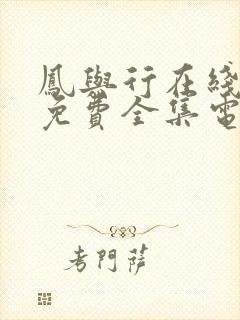 鳳與行在綫
免費全集電
考門薩